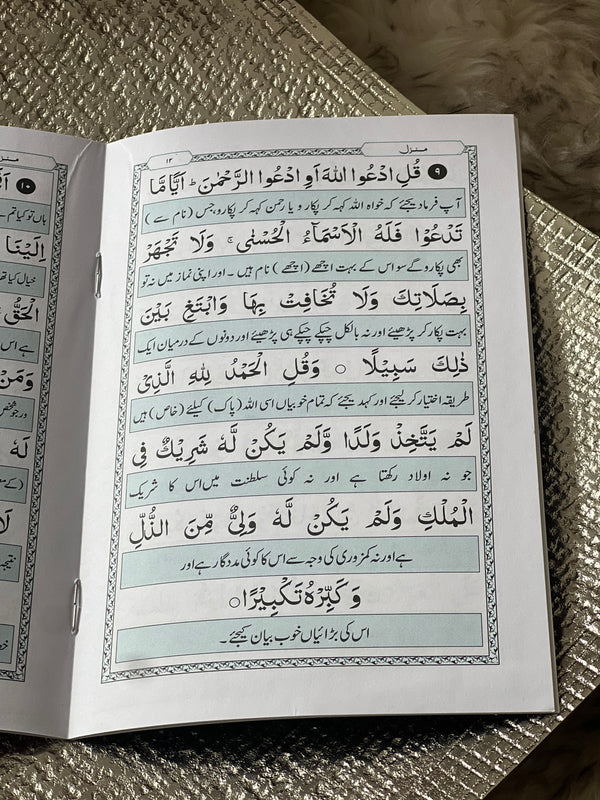 منزل ۱۲
۹ قُلِ ادْعُوا اللّٰهَ اَوِ ادْعُوا الرَّحْمٰنَ ؕ اَيًّا مَّا
آپ فرما دیجئے کہ خواہ اللہ کہہ کر پکارو یا رحمن کہہ کر پکارو، جس (نام سے)
تَدْعُوْا فَلَهُ الْاَسْمَآءُ الْحُسْنٰى ۚ وَلَا تَجْهَرْ
بھی پکارو گے سو اس کے بہت اچھے (اچھے) نام ہیں ۔ اور اپنی نماز میں نہ تو
بِصَلَاتِكَ وَلَا تُخَافِتْ بِهَا وَابْتَغِ بَيْنَ
بہت پکار کر پڑھیئے اور نہ بالکل چپکے چپکے ہی پڑھیئے اور دونوں کے درمیان ایک
ذٰلِكَ سَبِيْلًا ○ وَقُلِ الْحَمْدُ لِلّٰهِ الَّذِىْ
طریقہ اختیار کر لیجئے اور کہہ دیجئے کہ تمام خوبیاں اسی اللہ (پاک) کیلئے (خاص) ہیں
لَمْ يَتَّخِذْ وَلَدًا وَّلَمْ يَكُنْ لَّهٗ شَرِيْكٌ فِى
جو نہ اولاد رکھتا ہے اور نہ کوئی سلطنت میں اس کا شریک
الْمُلْكِ وَلَمْ يَكُنْ لَّهٗ وَلِىٌّ مِّنَ الذُّلِّ
ہے اور نہ کمزوری کی وجہ سے اس کا کوئی مددگار ہے اور
وَ كَبِّرْهُ تَكْبِيْرًا ○
اس کی بڑائیاں خوب بیان کیجئے ۔
۱۰
ہاں تو کیا تم
اِلَيْنَا
خیال کیا تھا
الْحَقُّ
ہے اس
وَمَنْ
در جو شخص
لَهٗ
لَا
نتیجہ